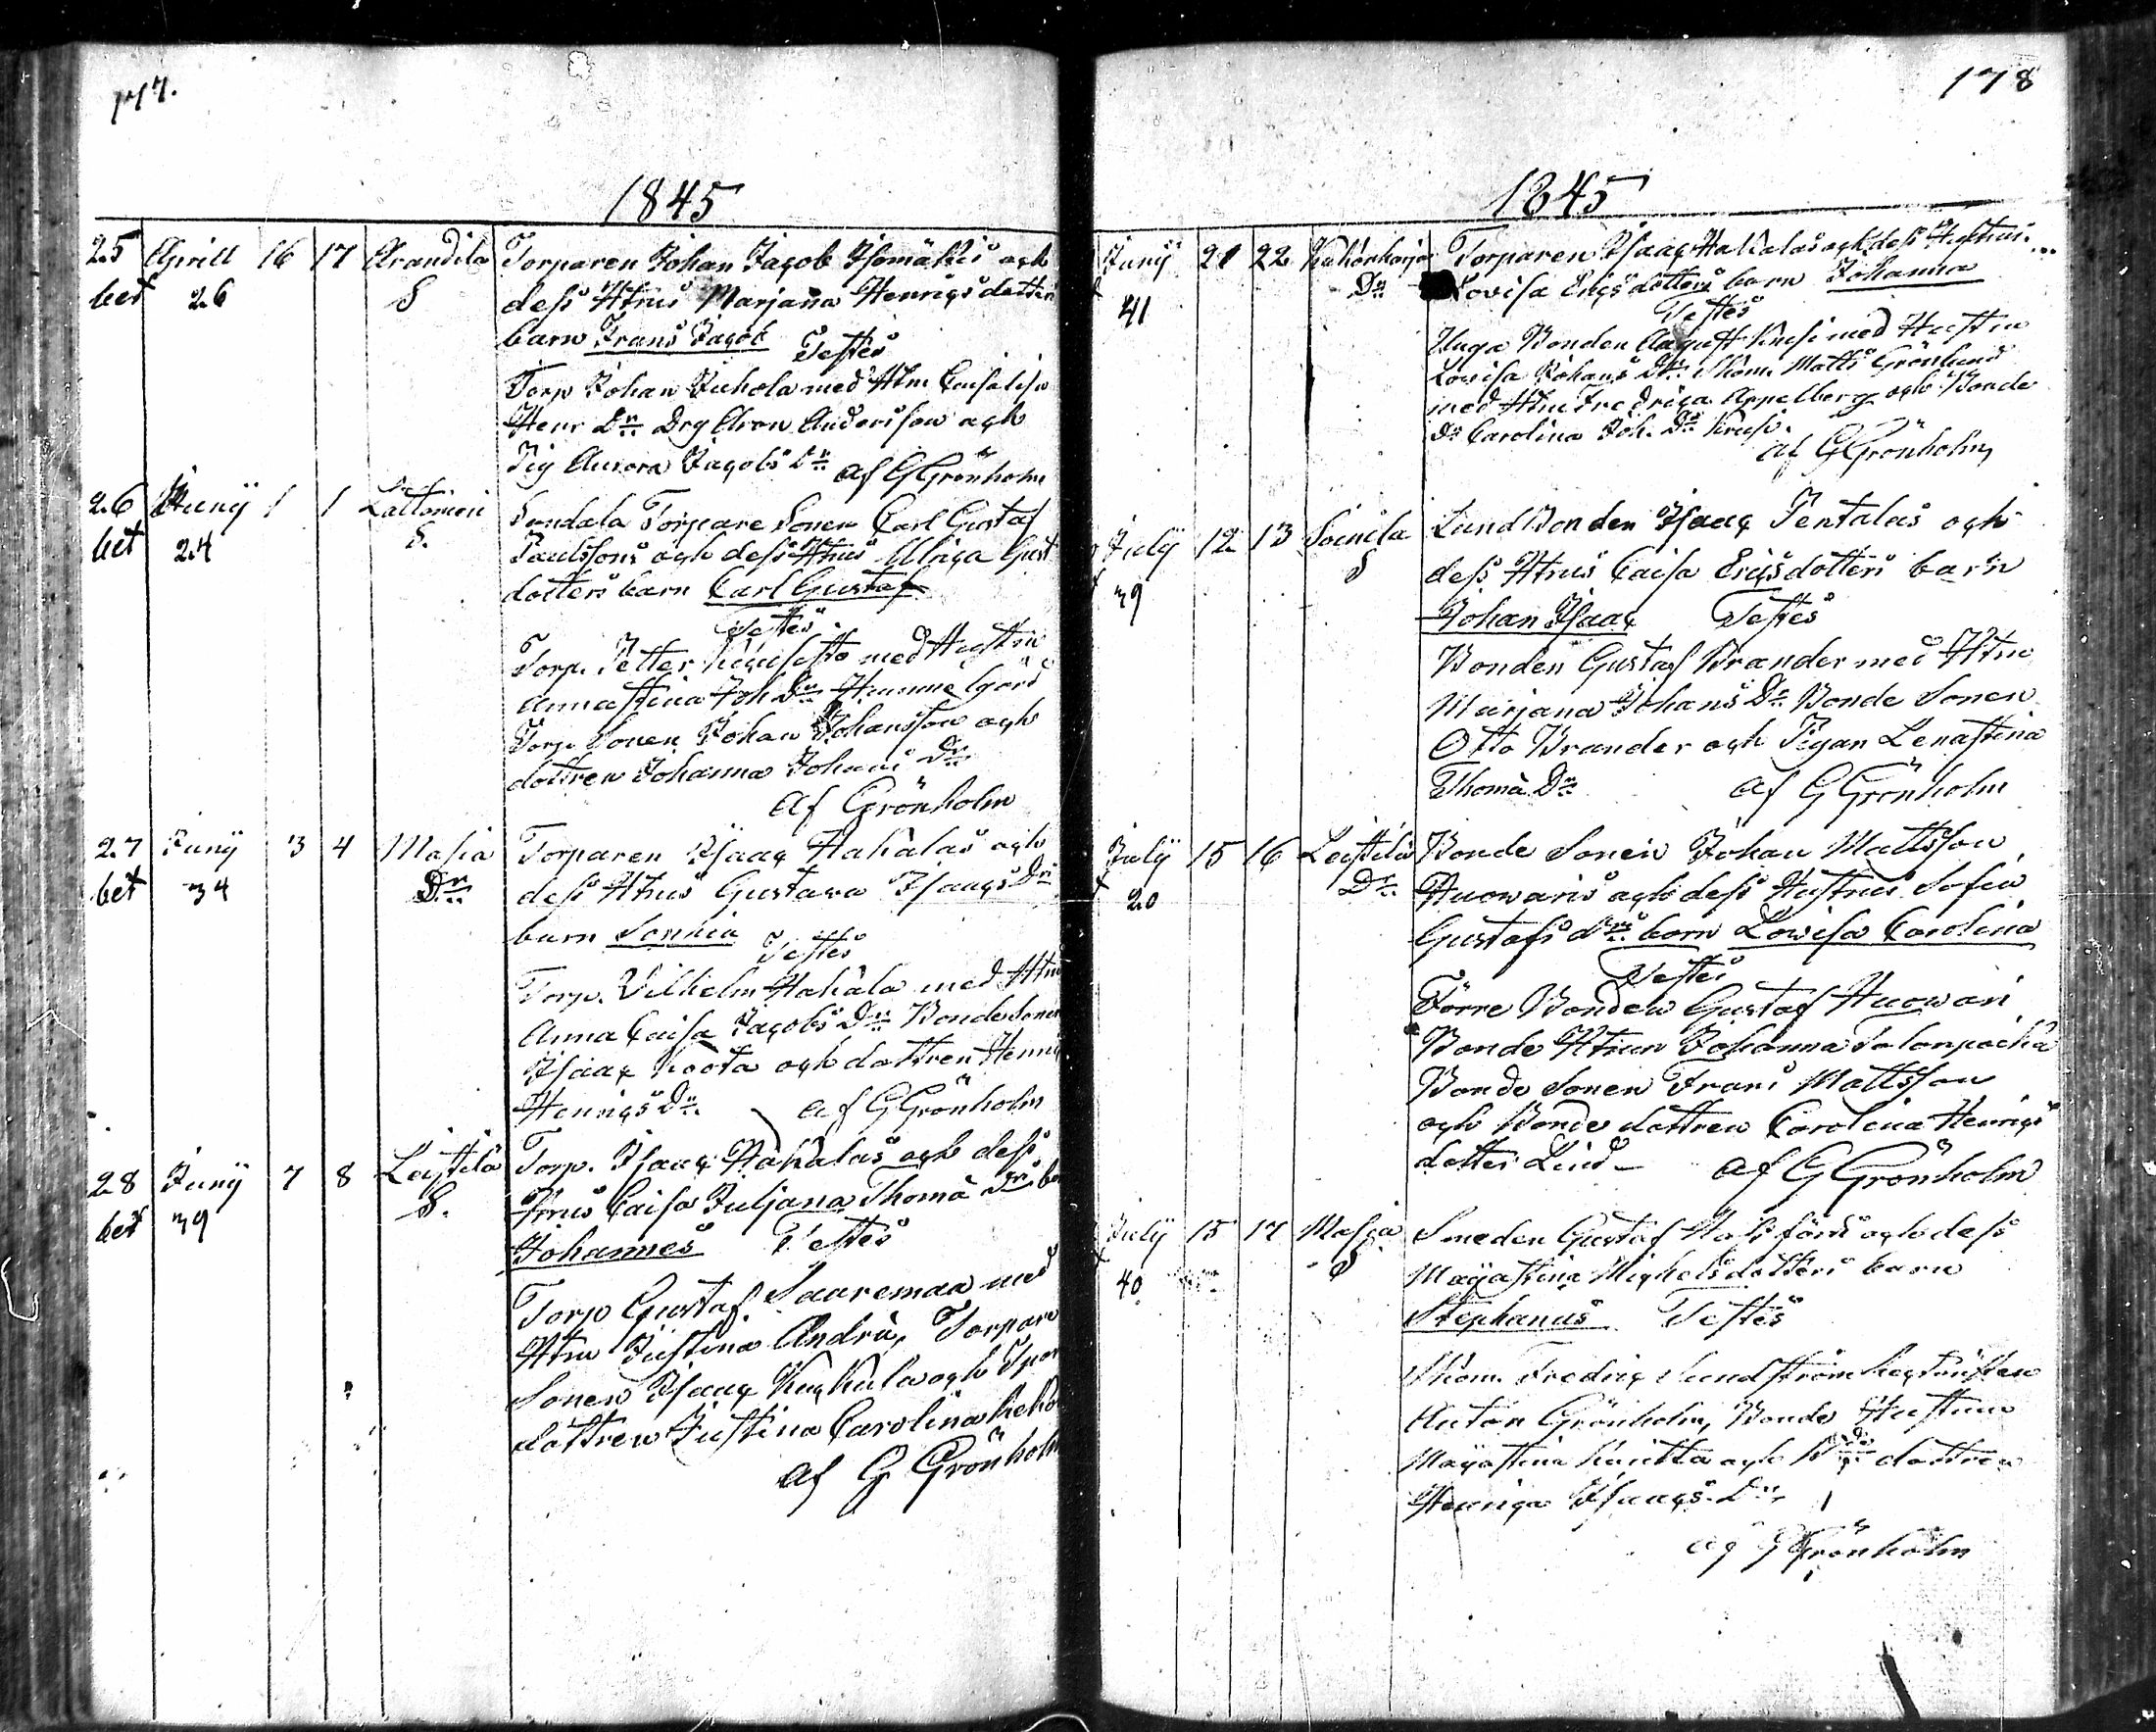 177.
1845
25 Aprill 16 17 Arandila Torparen Johan Jacob Isomäkis och
bet 26 S dess Htrus Marjana Henricsdotters
barn Frans Jacob Testes
Torp Johan Juhola med Htru Caisa Lisa
Henr Dr Drg Aron Andersson och
Pig Aurora Jacobs Dr af G Grönholm
26 Juny 1 1 Lattomeri Torpare Sonen Carl Gustaf
bet 24 S. Paulssons och dess Htrus Ulrica Gust
dotters barn Carl Gustaf
Testes
Torp. Petter med Hustru
Anna Stina Joh Dr
Torp. Sonen Johan Johansson och
dottren Johanna Johans Dr
af Grönholm
27 Juny 3 4 Masia Torparen Isaac Hakalas och
bet 34 Dr dess Htrus Gustava Isaacs Drs
barn
Testes
Torp. Vilhelm Hakala med Htru
Anna Caisa Jacobs Dr Bonde Sonen
Isaac och dottren
Henrics Dr. af G Grönholm
28 Juny 7 8 Leistilä Torp. Isaac Hakalas och dess
bet 39 S. Htrus Caisa Juljana Thomä Drs
Johannes Testes
Torp Gustaf Saaremaa med
Htru Justina Andrä, Torpare
Sonen Isaac och
dottren Justina Carolina
af G Grönholm
178
1845
Juny 21 22 Torparen Isaac Hakalas och dess Hustrus
41 Dr Lovisa Ericsdotters barn Johanna
Testes
Unga Bonden August med Hustru
Lovisa Johans Dr Skom. Matts Grönlund
med Htru Fredrica Appelberg och Bonde
Dr Carolina Joh. Dr
af G Grönholm
July 12 13 Soinila Lund Bonden Isaac Pentalas och
39 S dess Htrus Caisa Ericsdotters barn
Johan Isaac Testes
Bonden Gustaf Brander med Htru
Marjana Johans Dr Bonde Sonen
Otto Brander och Pigan Lena Stina
Thomä Dr af G Grönholm
July 15 16 Leistilä Bonde Sonen Johan Mattsson
20 Dr. Huowaris och dess Hustrus Sofia
Gustafs Drs barn Lowisa Carolina
Testes
Förre Bonden Gustaf Huowari
Bonde Htrun Johanna
Bonde Sonen Frans Mattsson
och Bonde dottren Carolina Henrics
dotter Lind af G Grönholm
July 15 17 Masia Smeden Gustaf och dess
40 S Maja Stina Michelsdotters barn
Stephanus Testes
Skom. Fredric Sundström
Anton Grönholm, Bonde Hustrun
Maja Stina och dottren
Henrica Isaacs Dr
af G Grönholm